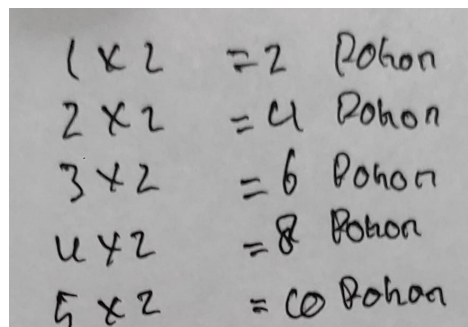 1 x 2 = 2 Pohon
2 x 2 = 4 Pohon
3 x 2 = 6 Pohon
4 x 2 = 8 Pohon
5 x 2 = 10 Pohon